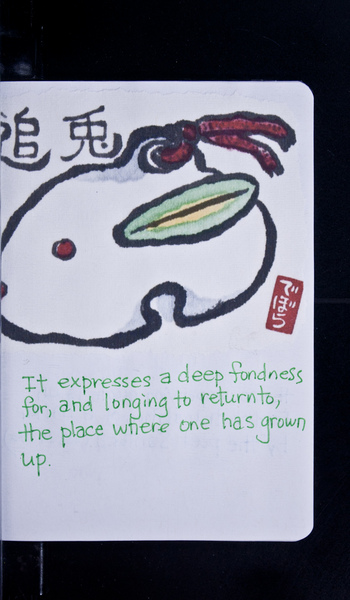 兎追
It expresses a deep fondness
for, and longing to return to,
the place where one has grown
up.